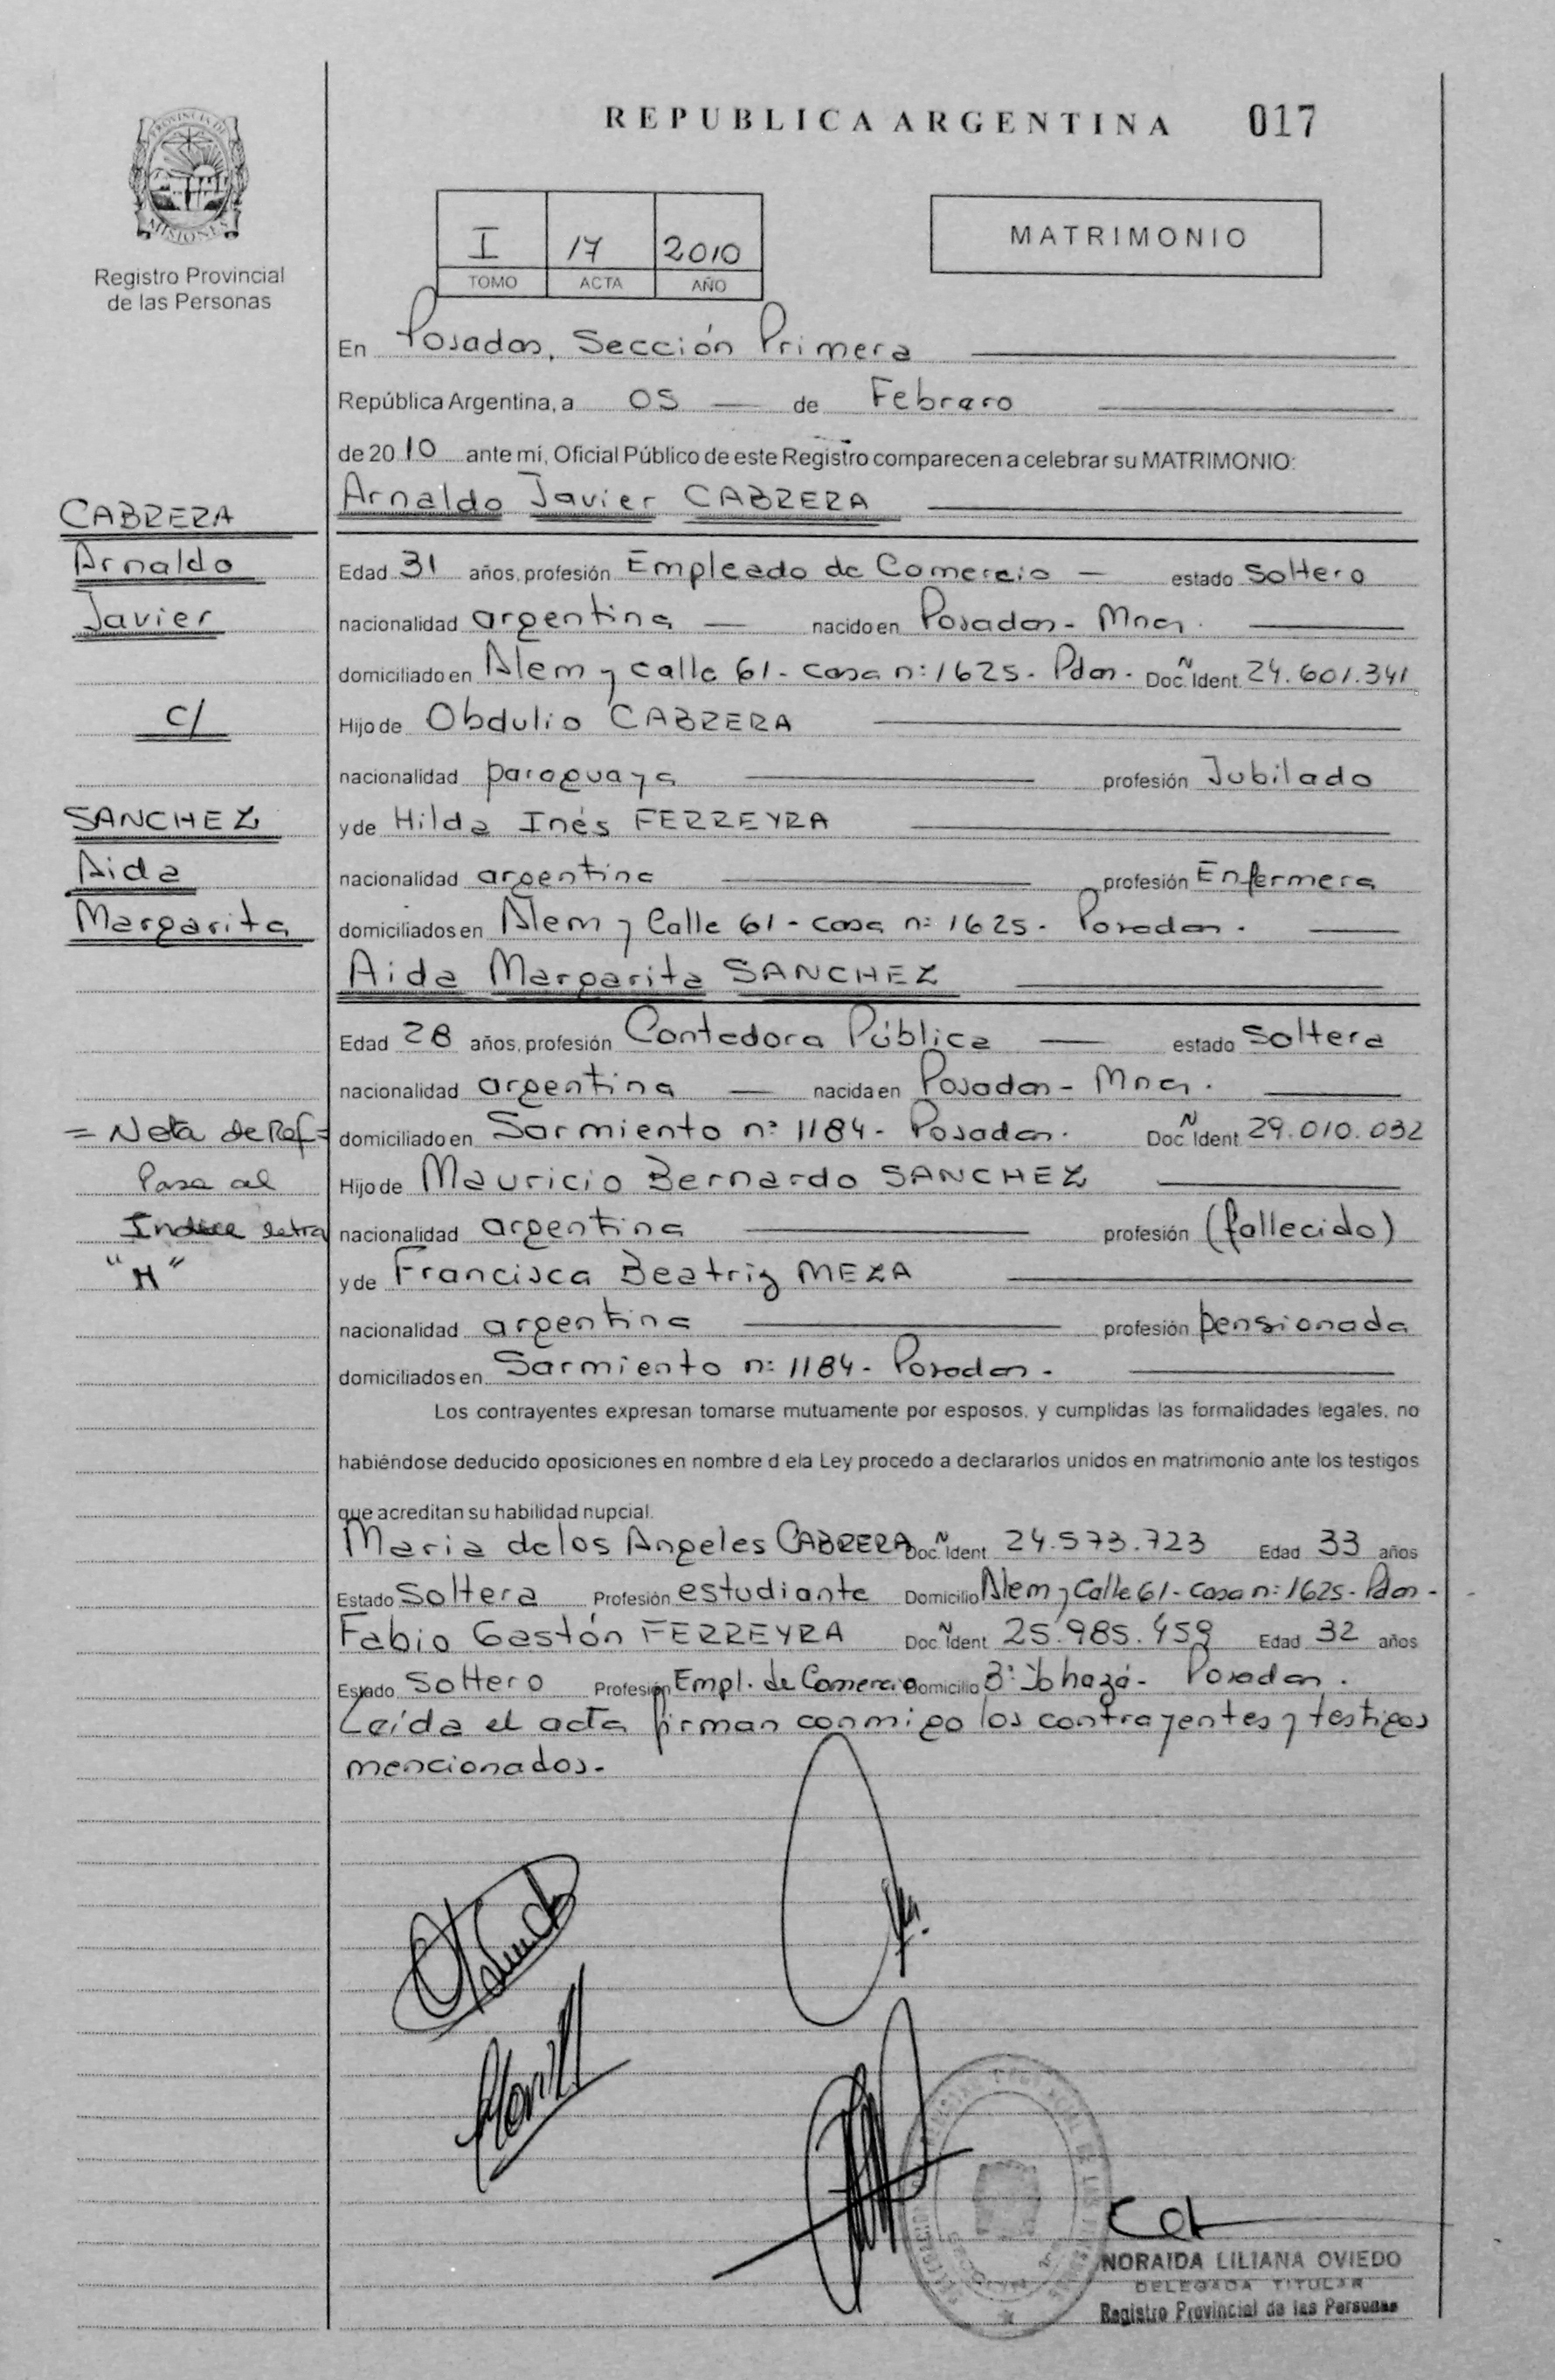 REPUBLICA ARGENTINA 017
PROVINCIA DE
MISIONES
Registro Provincial
de las Personas
I 17 2010
TOMO ACTA AÑO
MATRIMONIO
En Posadas, Sección Primera
República Argentina, a 05 de Febrero
de 2010 ante mi, Oficial Público de este Registro comparecen a celebrar su MATRIMONIO:
Arnaldo Javier CABRERA
CABRERA
Arnaldo
Javier
c/
SANCHEZ
Aida
Margarita
Edad 31 años, profesión Empleado de Comercio estado Soltero
nacionalidad argentina nacido en Posadas - Mnes.
domiciliado en Alem y calle 61 - casa n: 1625 - Pdas. Doc. Ident. N 24.601.341
Hijo de Obdulio CABRERA
nacionalidad paraguaya profesión Jubilado
y de Hilda Inés FERREYRA
nacionalidad argentina profesión Enfermera
domiciliados en Alem y Calle 61 - casa n: 1625 - Posadas.
Aida Margarita SANCHEZ
Edad 28 años, profesión Contadora Pública estado Soltera
nacionalidad argentina nacida en Posadas - Mnes.
domiciliado en Sarmiento n: 1184 - Posadas. Doc. Ident. N 29.010.032
Hijo de Mauricio Bernardo SANCHEZ
nacionalidad argentina profesión (fallecido)
y de Francisca Beatriz MEZA
nacionalidad argentina profesión pensionada
domiciliados en Sarmiento n: 1184 - Posadas.
= Nota de Ref =
Pasa al
Indice letra
"M"
Los contrayentes expresan tomarse mutuamente por esposos, y cumplidas las formalidades legales, no
habiéndose deducido oposiciones en nombre d ela Ley procedo a declararlos unidos en matrimonio ante los testigos
que acreditan su habilidad nupcial.
Maria de los Angeles CABRERA Doc. Ident. N 24.573.723 Edad 33 años
Estado Soltera Profesión estudiante Domicilio Alem y Calle 61 - casa n: 1625 - Pdas -
Fabio Gastón FERREYRA Doc. Ident. N 25.985.459 Edad 32 años
Estado Soltero Profesión Empl. de Comercio Domicilio B: Posadas.
Leída el acta firman conmigo los contrayentes y testigos
mencionados.
NORAIDA LILIANA OVIEDO
DELEGADA TITULAR
Registro Provincial de las Personas